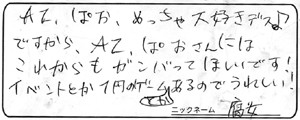 AZ、ぱお、めっちゃ大好きデス♪
ですから、AZ、ぱおさんには
これからもガンバってほしいです!
イベントとか1円のゲームとかあるのでうれしい!
ニックネーム 腐女